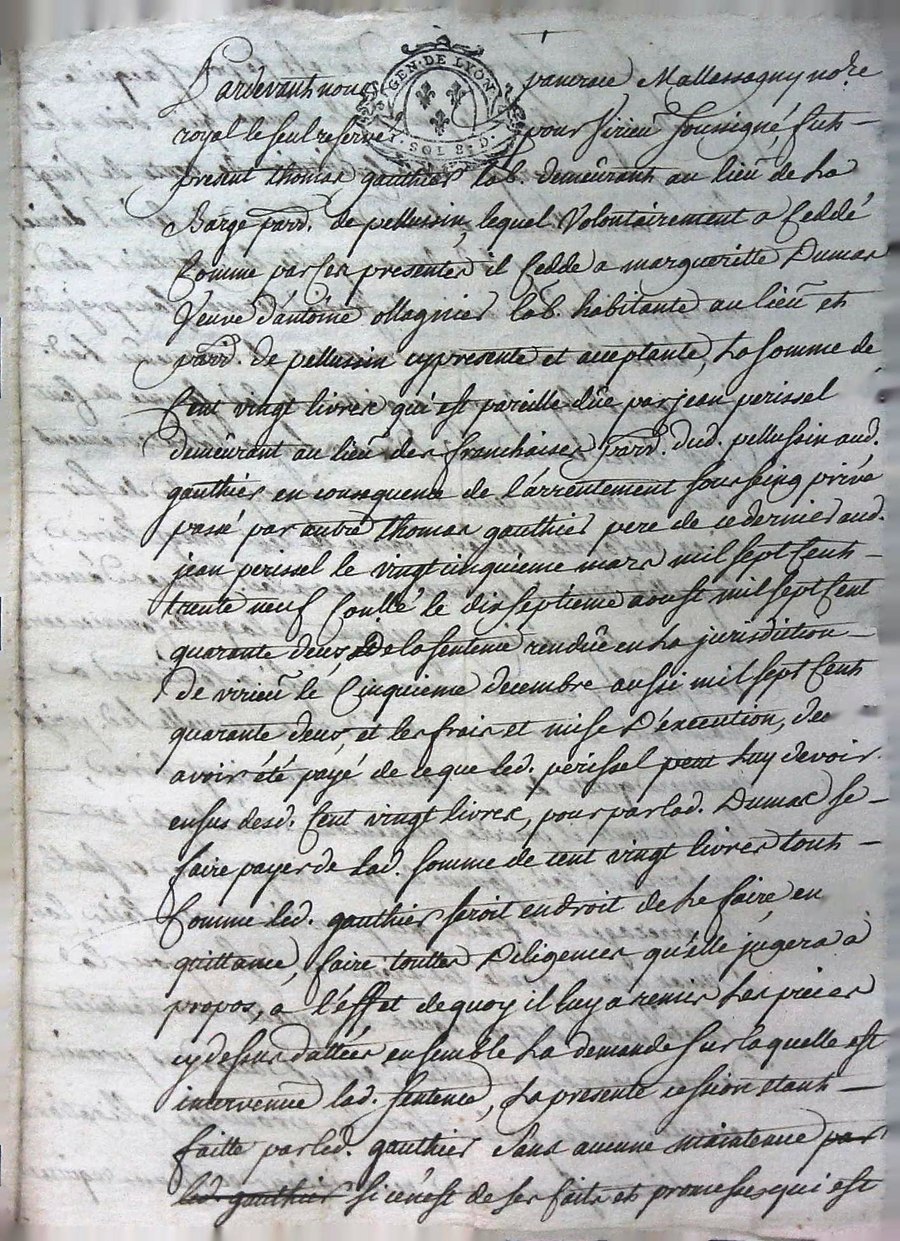 GEN · DE LYON
· SOL 8 · D ·
Pardevant nous pancrace Mallassagny no.re
royal le seul reservé pour Virieu soussigné, fut
present thomas gauthier lab. demeurant au lieu de La
Barge parr. de pellussin, lequel Volontairement a Ceddé
Comme par Ces presentes il Cedde a margueritte Dumas
Veuve d'antoine ollagnier lab. habitante au lieu et
parr. de pellussin cy presente et acceptante, La somme de
Cent vingt livres qui est pareille dûe par jean perissel
demeurant au lieu des franchises parr. dud. pellussin aud.
gauthier en consequence de l'arrentement sous seing privé
passé par autre thomas gauthier pere de ce dernier aud.
jean perissel le vingt cinquieme mars mil sept Cent
trente neuf Conllé le dix septieme aoust mil sept Cent
quarante deux, De la sentence rendûe en La jurisdition
de virieu le Cinquieme decembre aussi mil sept Cent
quarante deux, et les frais et mise D'execution, de
avoir été payé de ce que led. perissel peut Luy devoir
ensus desd. Cent vingt livres, pour par lad. Dumas se
faire payer de Lad. somme de cent vingt livres tout
Comme led. gauthier seroit en droit de Le faire, en
quittance, faire touttes Diligences qu'elle jugera a
propos, a l'effet de quoy il luy a remis Les pieces
cy dessus dattées ensemble La demande sur laquelle est
intervenue lad. sentence, La presente cession etant
faitte par led. gauthier sans aucune maintenue par
led gauthier si ce n'est de ses faits et promesses qui est